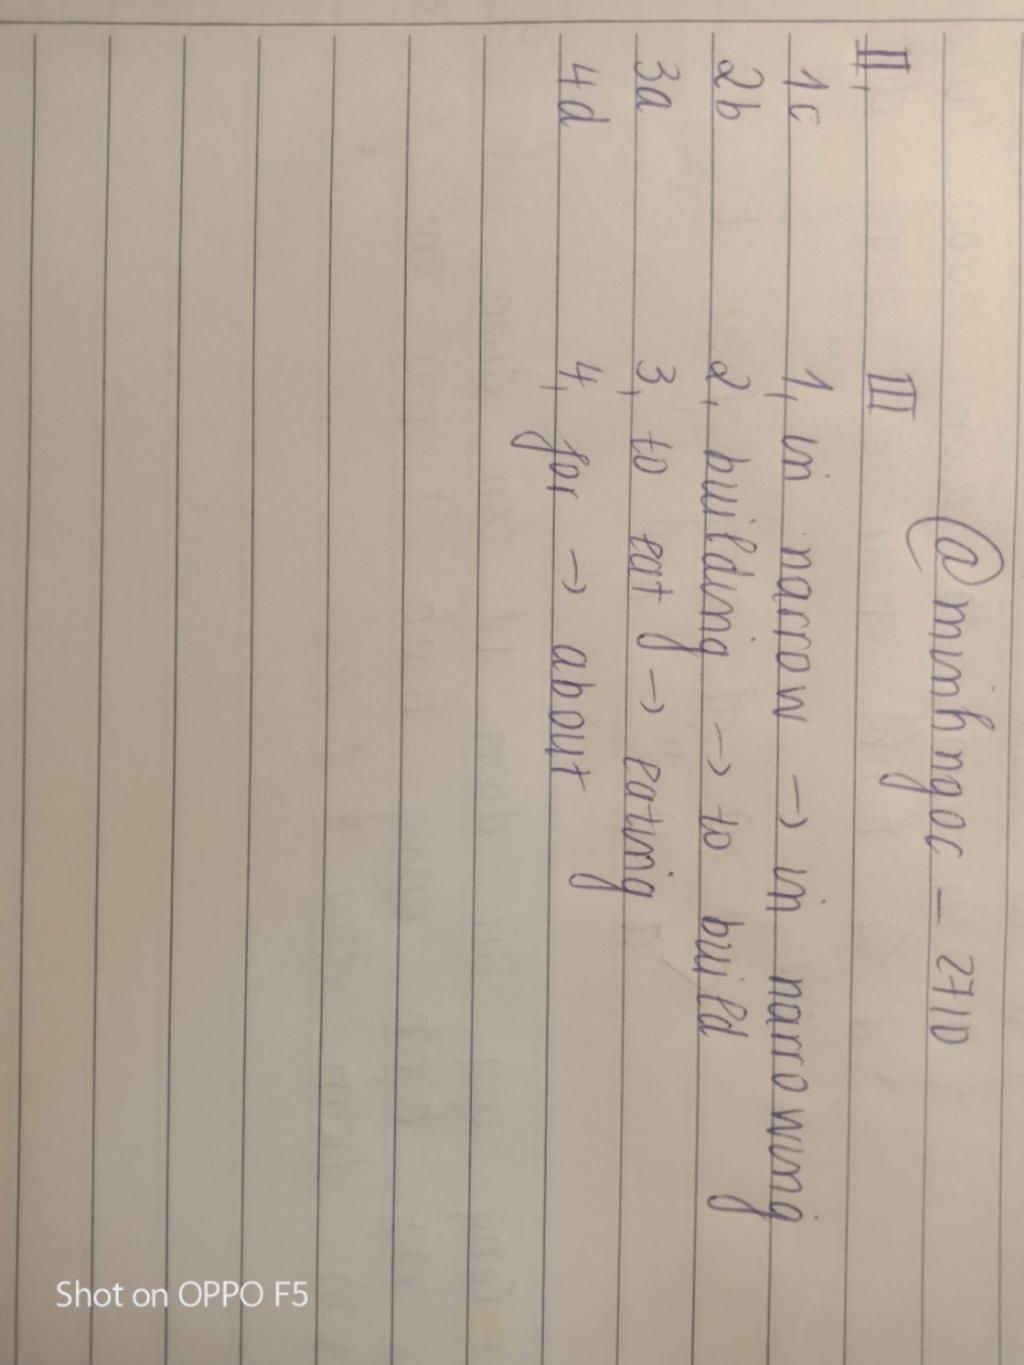 @minhngoc - 2710
II, III
1c 1, in narrow → in narrowing
2b 2, building → to build
3a 3, to eat → eating
4d 4, for → about
Shot on OPPO F5